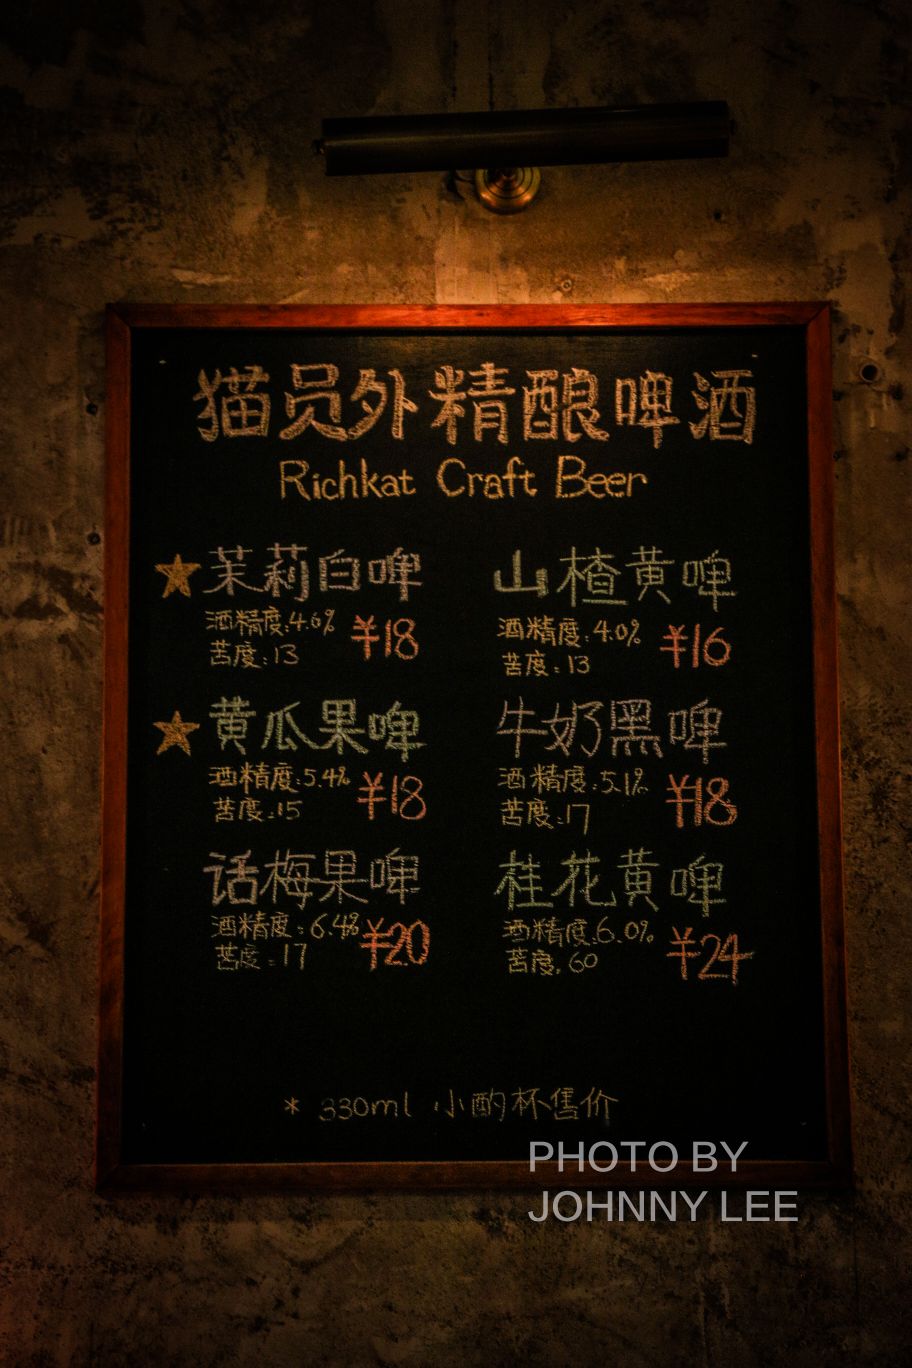 猫员外精酿啤酒
Richkat Craft Beer
★茉莉白啤
酒精度:4.6%
苦度:13
¥18
山楂黄啤
酒精度:4.0%
苦度:13
¥16
★黄瓜果啤
酒精度:5.4%
苦度:15
¥18
牛奶黑啤
酒精度:5.1%
苦度:17
¥18
话梅果啤
酒精度:6.4%
苦度:17
¥20
桂花黄啤
酒精度:6.0%
苦度:60
¥24
* 330ml 小酌杯售价
PHOTO BY
JOHNNY LEE